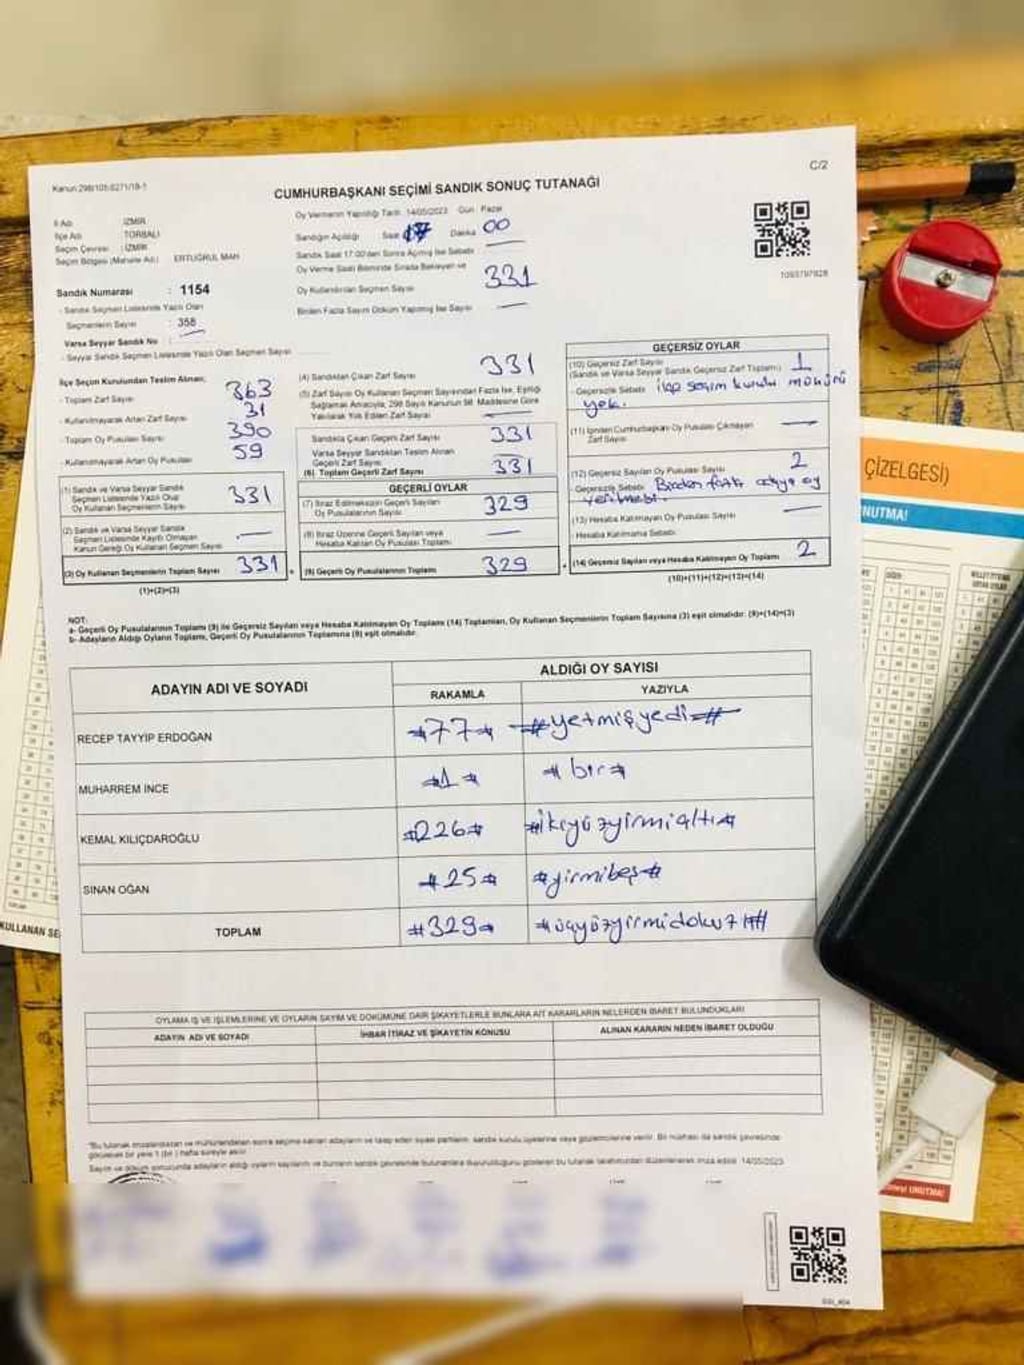 Kanun:298/105;6271/19-1
C/2
CUMHURBAŞKANI SEÇİMİ SANDIK SONUÇ TUTANAĞI
İl Adı : İZMİR
İlçe Adı : TORBALI
Seçim Çevresi : İZMİR
Seçim Bölgesi (Mahalle Adı) : ERTUĞRUL MAH
Sandık Numarası : 1154
- Sandık Seçmen Listesinde Yazılı Olan
Seçmenlerin Sayısı : 358
Varsa Seyyar Sandık No :
- Seyyar Sandık Seçmen Listesinde Yazılı Olan Seçmen Sayısı
Oy Vermenin Yapıldığı Tarih: 14/05/2023 Gün: Pazar
Sandığın Açıldığı Saat 17 Dakika 00
Sandık Saat 17:00'den Sonra Açılmış İse Sebebi
Oy Verme Saati Bitiminde Sırada Bekleyen ve
Oy Kullandırılan Seçmen Sayısı 331
Birden Fazla Sayım Döküm Yapılmış İse Sayısı —
1093797828
İlçe Seçim Kurulundan Teslim Alınan;
- Toplam Zarf Sayısı 363
- Kullanılmayarak Artan Zarf Sayısı 31
- Toplam Oy Pusulası Sayısı 390
- Kullanılmayarak Artan Oy Pusulası 59
(1) Sandık ve Varsa Seyyar Sandık
Seçmen Listesinde Yazılı Olup
Oy Kullanan Seçmenlerin Sayısı 331
(2) Sandık ve Varsa Seyyar Sandık
Seçmen Listesinde Kayıtlı Olmayan
Kanun Gereği Oy Kullanan Seçmen Sayısı —
(3) Oy Kullanan Seçmenlerin Toplam Sayısı 331
(1)+(2)=(3)
(4) Sandıktan Çıkan Zarf Sayısı 331
(5) Zarf Sayısı Oy Kullanan Seçmen Sayısından Fazla İse, Eşitliği
Sağlamak Amacıyla, 298 Sayılı Kanunun 98. Maddesine Göre
Yakılarak Yok Edilen Zarf Sayısı —
Sandıkta Çıkan Geçerli Zarf Sayısı 331
Varsa Seyyar Sandıktan Teslim Alınan
Geçerli Zarf Sayısı —
(6) Toplam Geçerli Zarf Sayısı 331
GEÇERLİ OYLAR
(7) İtiraz Edilmeksizin Geçerli Sayılan
Oy Pusulalarının Sayısı 329
(8) İtiraz Üzerine Geçerli Sayılan veya
Hesaba Katılan Oy Pusulası Toplamı —
(9) Geçerli Oy Pusulalarının Toplamı 329
GEÇERSİZ OYLAR
(10) Geçersiz Zarf Sayısı
(Sandık ve Varsa Seyyar Sandık Geçersiz Zarf Toplamı) 1
- Geçersizlik Sebebi: ilçe seçim kurulu mühürü
yok.
(11) İçinden Cumhurbaşkanı Oy Pusulası Çıkmayan
Zarf Sayısı —
(12) Geçersiz Sayılan Oy Pusulası Sayısı 2
Geçersizlik Sebebi: Birden fazla adaya oy
verilmesi.
(13) Hesaba Katılmayan Oy Pusulası Sayısı —
- Hesaba Katılmama Sebebi:
(14) Geçersiz Sayılan veya Hesaba Katılmayan Oy Toplamı 2
(10)+(11)+(12)+(13)=(14)
NOT:
a- Geçerli Oy Pusulalarının Toplamı (9) ile Geçersiz Sayılan veya Hesaba Katılmayan Oy Toplamı (14) Toplamları, Oy Kullanan Seçmenlerin Toplam Sayısına (3) eşit olmalıdır. (9)+(14)=(3)
b- Adayların Aldığı Oyların Toplamı, Geçerli Oy Pusulalarının Toplamına (9) eşit olmalıdır.
ADAYIN ADI VE SOYADI ALDIĞI OY SAYISI
RAKAMLA YAZIYLA
RECEP TAYYİP ERDOĞAN #77# #yetmişyedi#
MUHARREM İNCE #1# #bir#
KEMAL KILIÇDAROĞLU #226# #ikiyüzyirmialtı#
SİNAN OĞAN #25# #yirmibeş#
TOPLAM #329# #üçyüzyirmidokuz##
OYLAMA İŞ VE İŞLEMLERİNE VE OYLARIN SAYIM VE DÖKÜMÜNE DAİR ŞİKAYETLERLE BUNLARA AİT KARARLARIN NELERDEN İBARET BULUNDUKLARI
ADAYIN ADI VE SOYADI İHBAR İTİRAZ VE ŞİKAYETİN KONUSU ALINAN KARARIN NEDEN İBARET OLDUĞU
*Bu tutanak imzalandıktan ve mühürlendikten sonra seçime katılan adayların ve talep eden siyasi partilerin, sandık kurulu üyelerine veya gözlemcilerine verilir. Bir nüshası da sandık çevresinde
görülecek bir yere 1 (bir) hafta süreyle asılır.
Sayım ve döküm sonucunda adayların aldığı oyların sayılarını ve bunların sandık çevresinde bulunanlara duyurulduğunu gösteren bu tutanak tarafımızdan düzenlenerek imza edildi. 14/05/2023
ÇİZELGESİ)
NUTMA!
KULLANAN SE
UNUTMA!